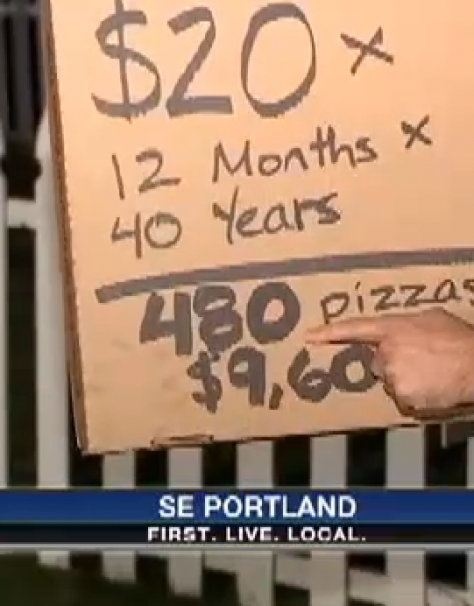 $20 x
12 Months x
40 Years
480 pizzas
$9,60
SE PORTLAND
FIRST. LIVE. LOCAL.